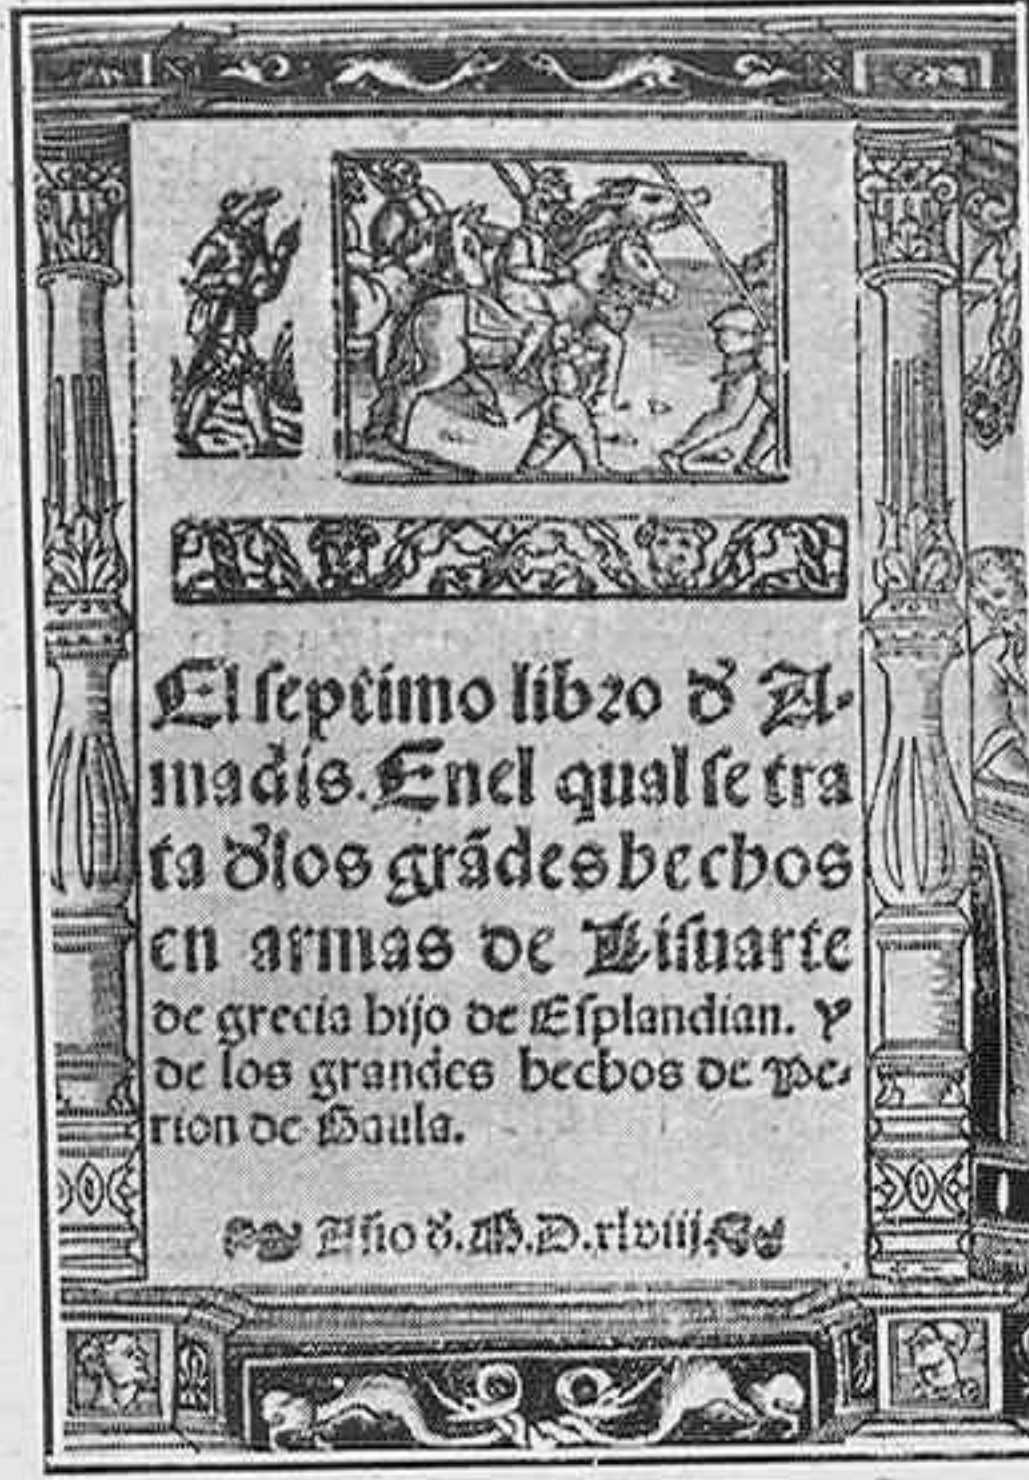 El septimo libro đ A-
madis. Enel qual se tra
ta đlos grãdes hechos
en armas de Lisuarte
de grecia hijo de Esplandian. Y
de los grandes hechos de Pe-
rion de Gaula.
Año đ. M.D.xlviij.